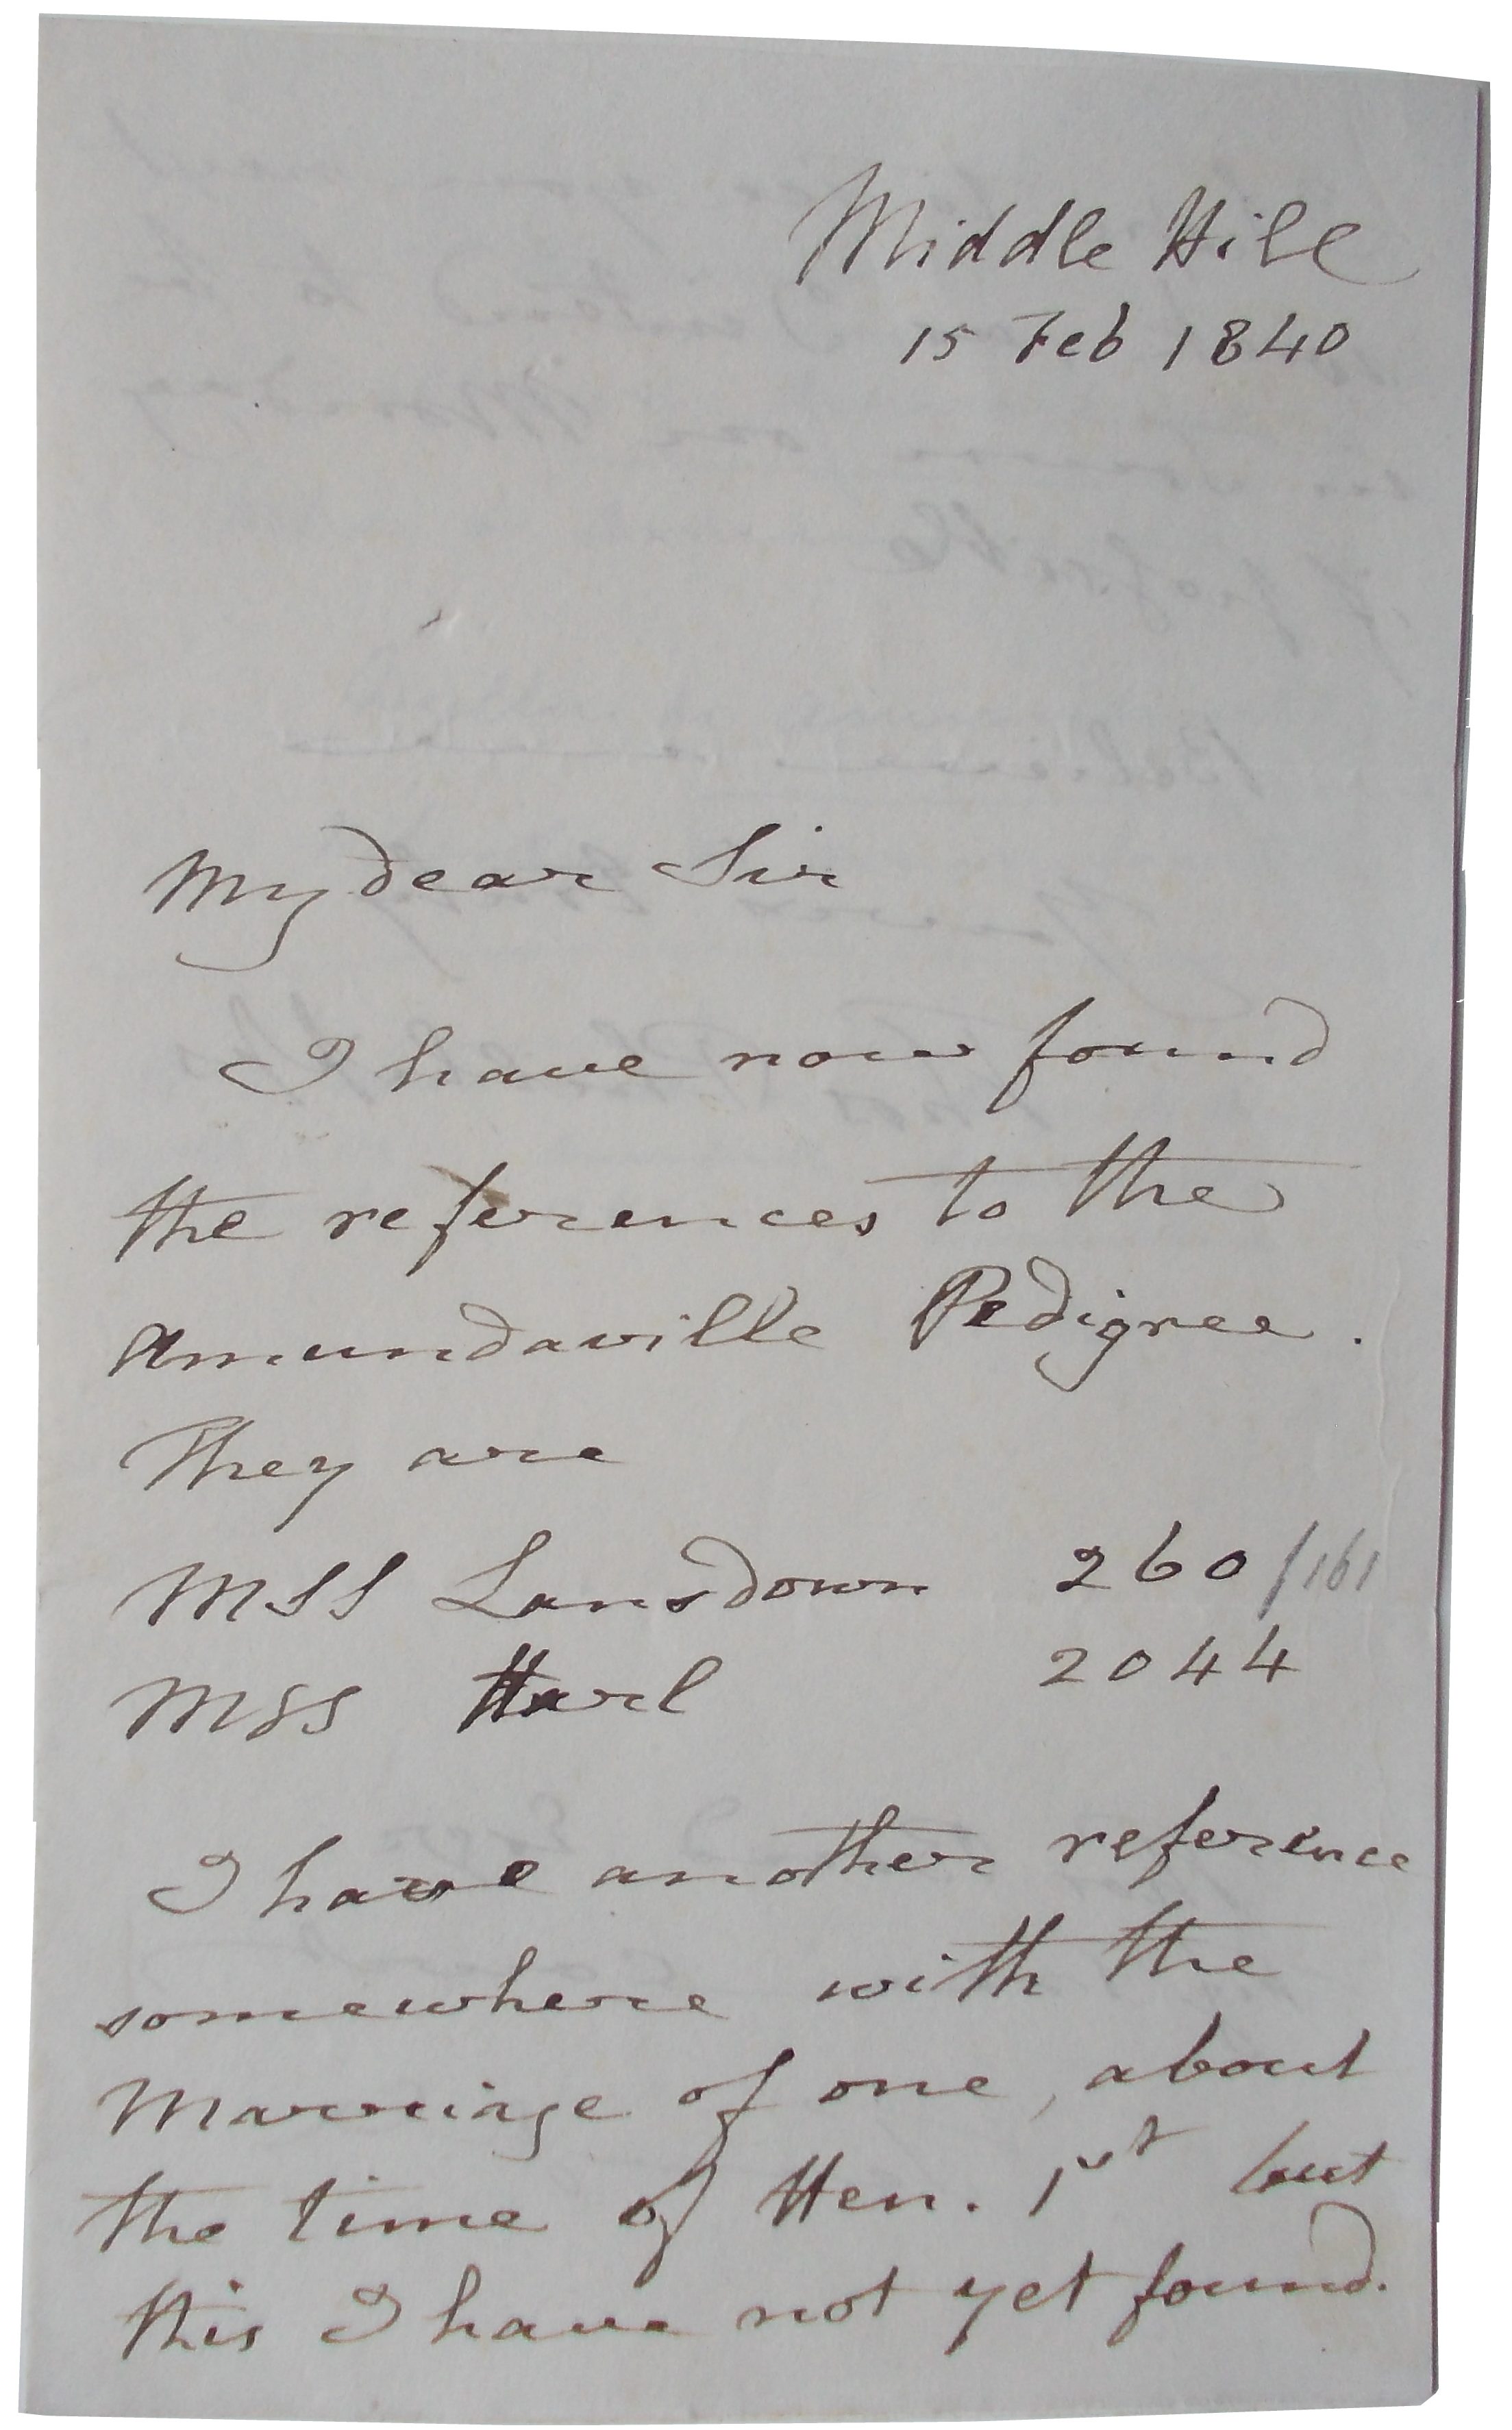 Middle Hill
15 Feb 1840
My dear Sir
I have now found
the references to the
Amundaville Pedigree.
They are
MSS Lansdown 260/161
MSS Harl 2044
I have another reference
somewhere with the
Marriage of one, about
the time of Hen. 1st but
this I have not yet found.